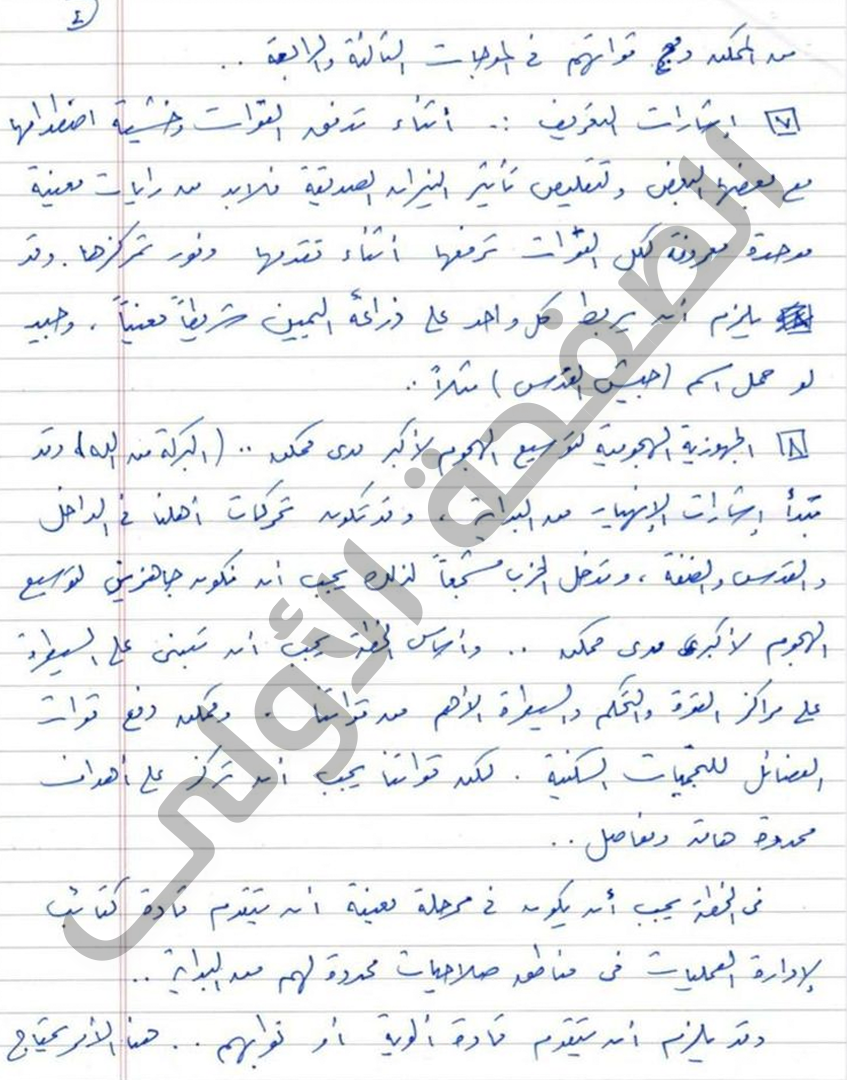 ٤
من الممكن دمج قواتهم في الموجات الثالثة والرابعة ..
٧ إشارات التعريف :- أثناء تدفق القوات وخشية اصطدامها
مع بعضها البعض ولتقليص تأثير النيران الصديقة فلابد من رايات معينة
موحدة معروفة لكل القوات ترفعها أثناء تقدمها وفور تمركزها. وقد
يلزم أن يربط كل واحد على ذراعه اليمين شريطاً معيناً، وحبيد
لو حمل اسم (جيش القدس) مثلاً ..
٨ الجهوزية الهجومية لتوسيع الهجوم لأكبر مدى ممكن .. (البركة من الله) وقد
تبدأ إشارات الإنهيار من البداية، وقد تكون تحركات أهلنا في الداخل
والقدس والضفة، وتدخل الحزب مشجعاً لذلك يجب أن نكون جاهزين لتوسيع
الهجوم لأكبر مدى ممكن .. وأساس الخطة يجب أن تبنى على السيطرة
على مراكز القوة والتحكم والسيطرة الأهم من قواتنا. وممكن دفع قوات
الفصائل للتجمعات السكنية. لكن قواتنا يجب أن تركز على أهداف
محدودة هامة ومفاصل ..
في الخطة يجب أن يكون في مرحلة معينة أن يتقدم قادة كتائب
لإدارة العمليات في مناطق صلاحيات محددة لهم من البداية ..
وقد يلزم أن يتقدم قادة ألوية أو نوابهم .. هذا الأمر يحتاج
الصفحة الأولى